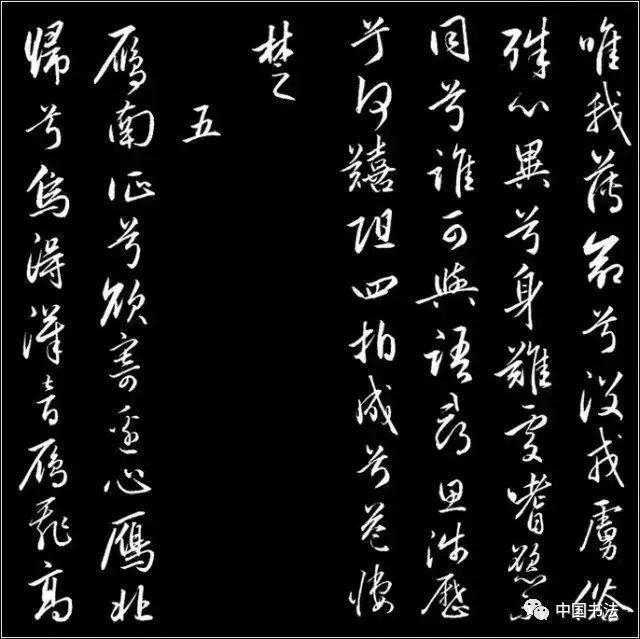 唯我薄命兮沒戎虜俗
殊心異兮身難處嗜慾不
同兮誰可與語尋思涉歷
兮何囏阻四拍成兮益悽
楚
五
鴈南征兮欲寄邊心鴈北
歸兮為得漢音鴈飛高
中国书法